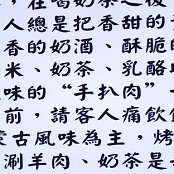 ，在喝奶茶之後
人總是把香甜的
香的奶酒、酥脆
米、奶茶、乳酪
味的“手扒肉”
前，請客人痛飲
蒙古風味為主，烤
涮羊肉、奶茶是